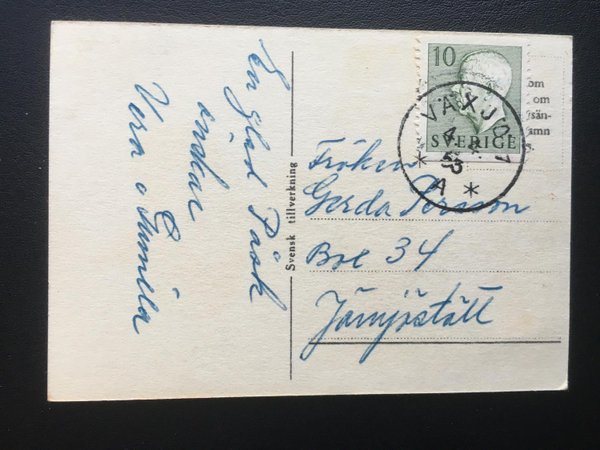 En glad Påsk
önskar
Vera o Gunilla
Svensk tillverkning
10
SVERIGE
VÄXJÖ 1
4. 4.
53
* A *
om
om
sän-
amn
Fröken
Gerda Persson
Box 34
Jämjöslätt